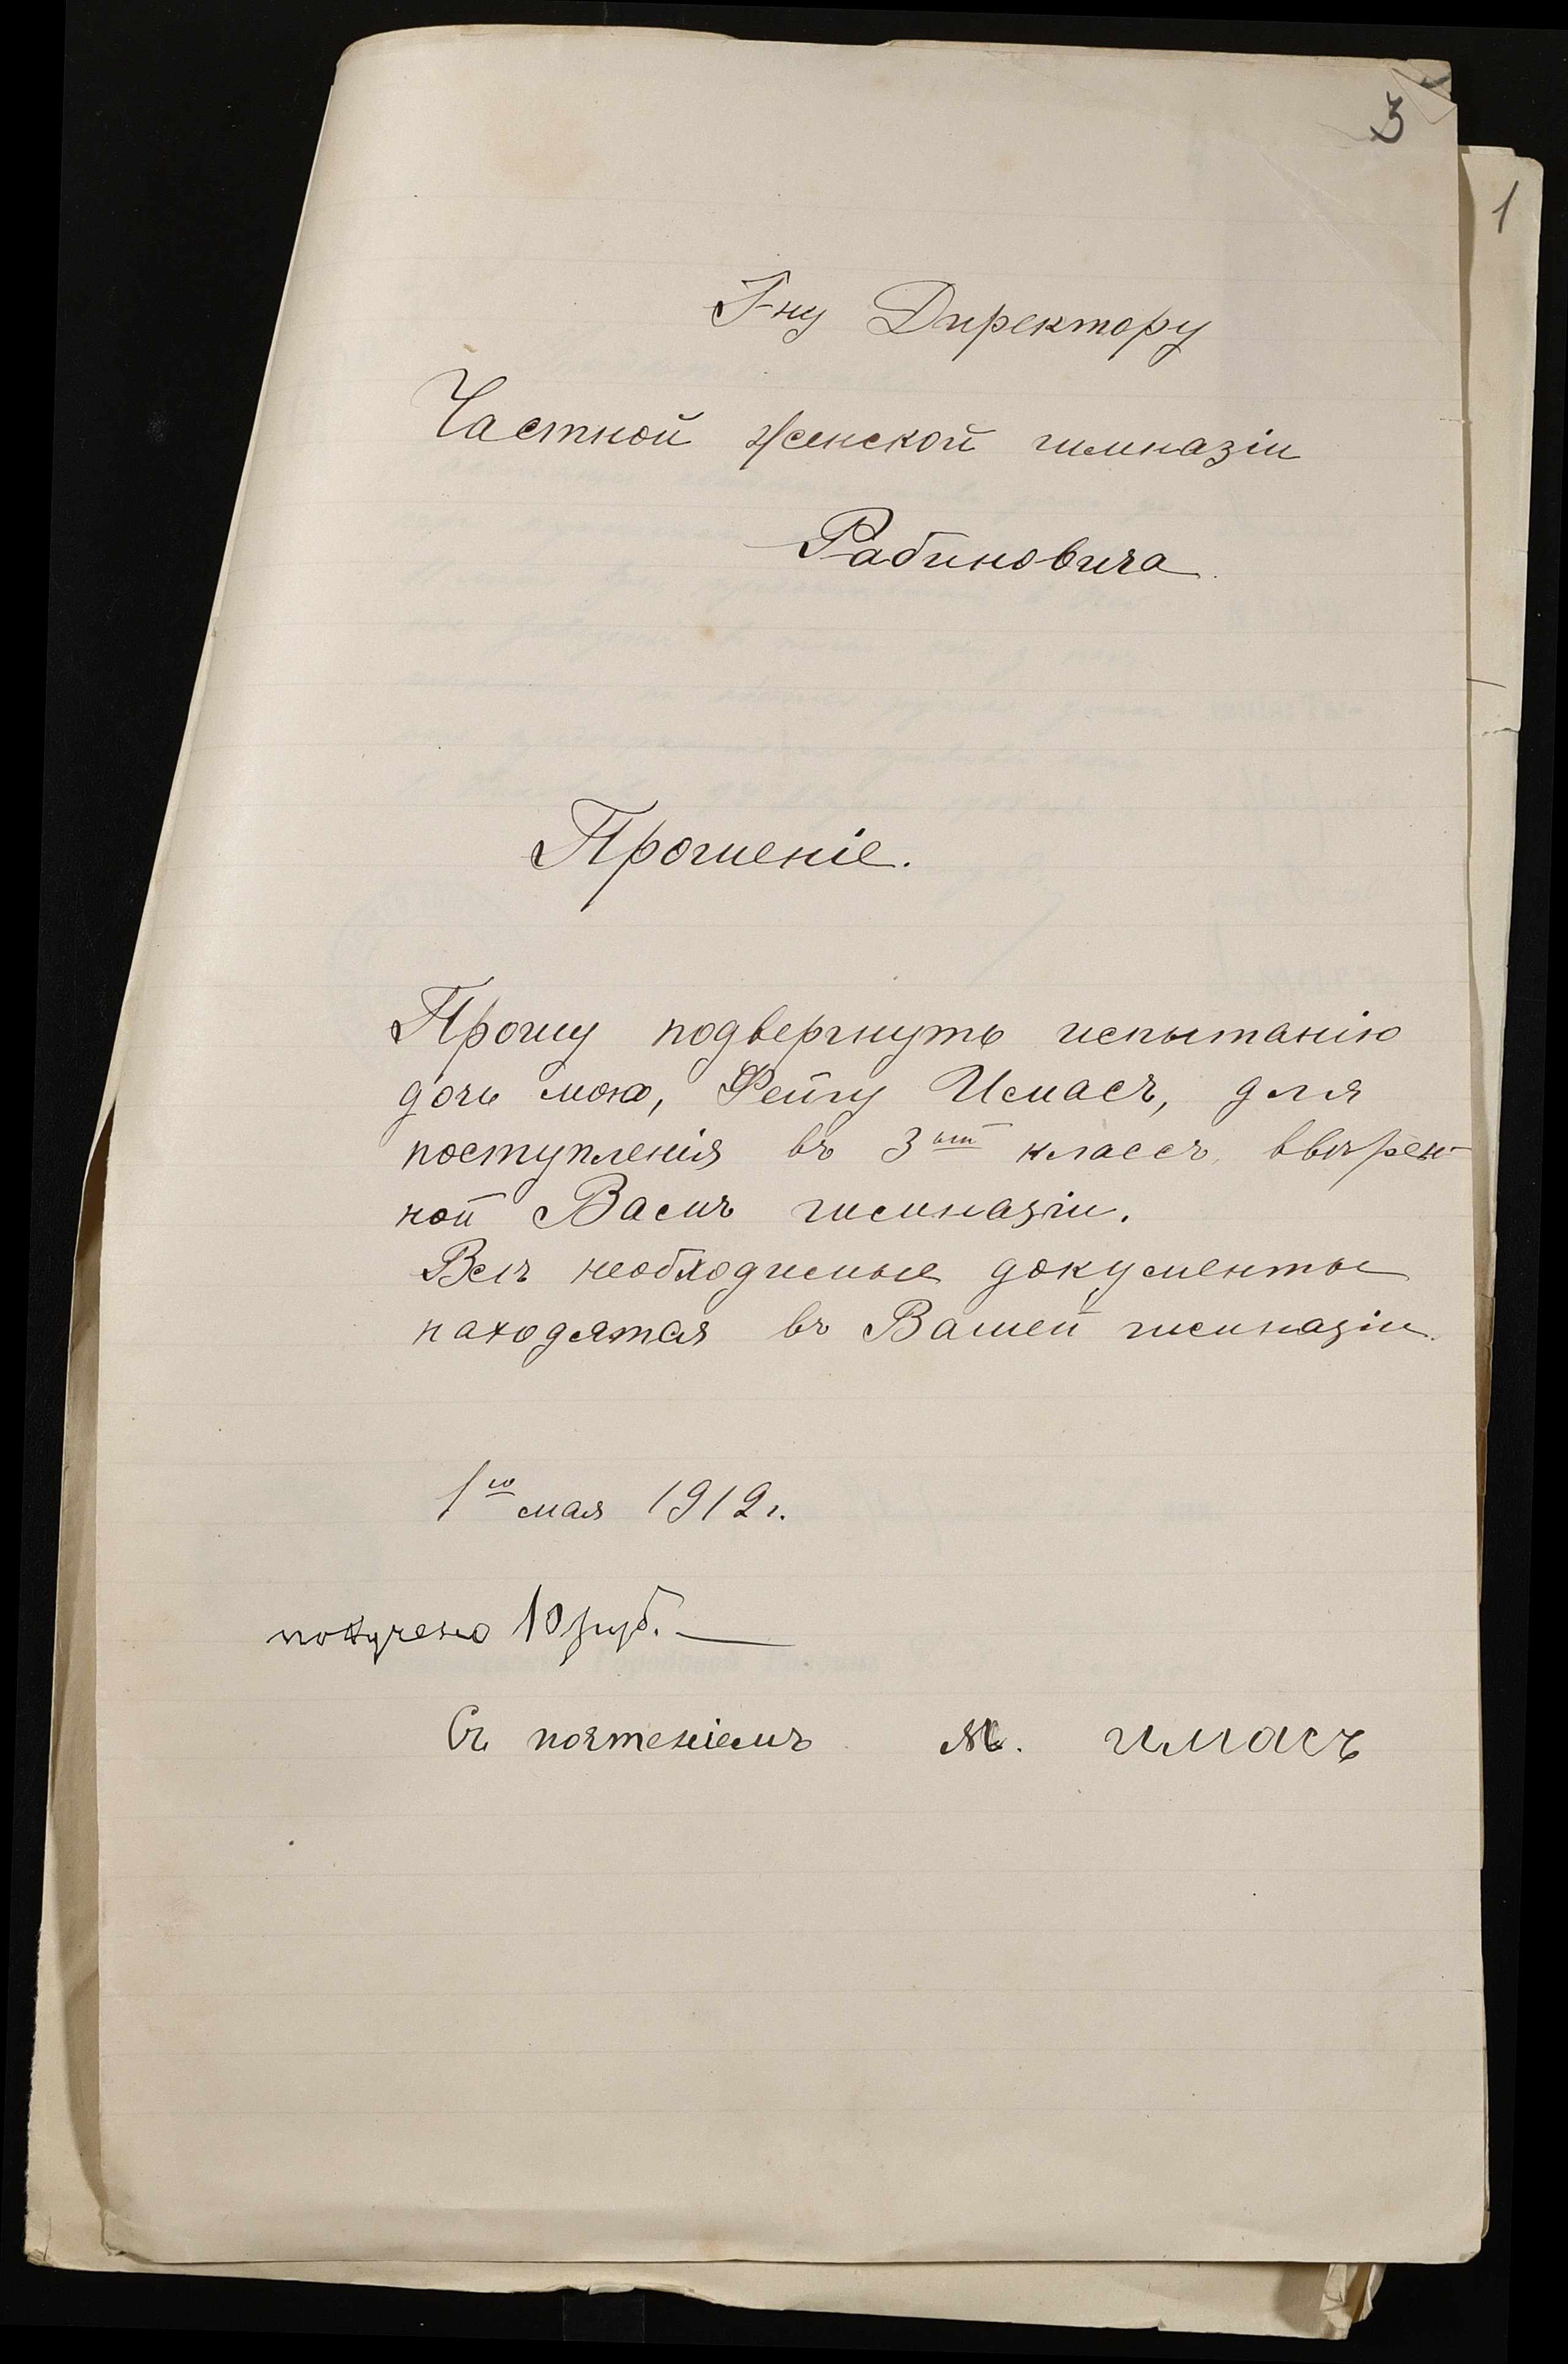 3
1
Г-ну Директору
Частной женской гимназіи
Рабиновича.
Прошеніе.
Прошу подвергнуть испытанію
дочь мою, Фейгу Имасъ, для
поступленія въ 3ій классъ, ввѣрен-
ной Вамъ гимназіи.
Всѣ необходимые документы
находятся въ Вашей гимназіи.
1го мая 1912 г.
получено 10 руб. —
Съ почтеніемъ М. Имасъ